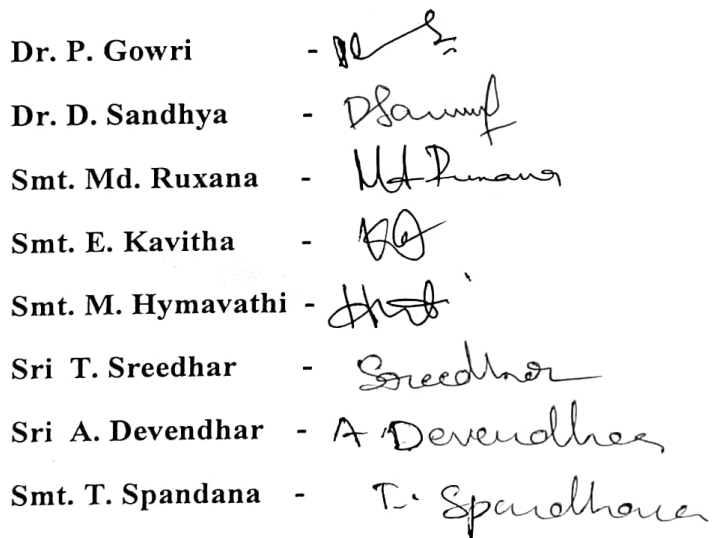 Dr. P. Gowri -
Dr. D. Sandhya - DSa
Smt. Md. Ruxana - Md Ruxana
Smt. E. Kavitha -
Smt. M. Hymavathi -
Sri T. Sreedhar - Sreedhar
Sri A. Devendhar - A. Devendhar
Smt. T. Spandana - T. Spandhana